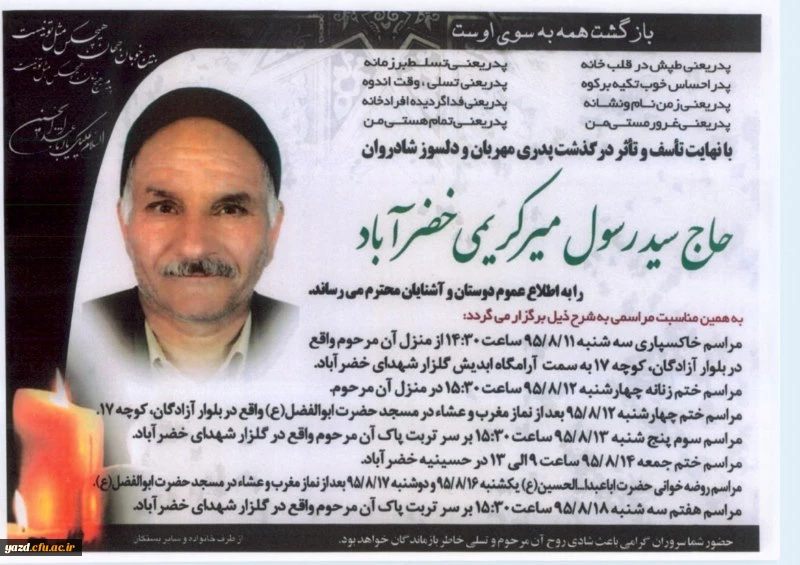 بازگشت همه به سوی اوست
بین خوبان جهان هیچکس مثل تو نیست
السلام علیک یا اباعبدالله الحسین
پدر یعنی طپش در قلب خانه
پدر یعنی تسلط بر زمانه
پدر احساس خوب تکیه بر کوه
پدر یعنی تسلی، وقت اندوه
پدر یعنی زمن نام و نشانه
پدر یعنی فدا گردیده افراد خانه
پدر یعنی غرور مستی من
پدر یعنی تمام هستی من
با نهایت تأسف و تأثر درگذشت پدری مهربان و دلسوز شادروان
حاج سید رسول میرکریمی خضرآباد
را به اطلاع عموم دوستان و آشنایان محترم می رساند.
به همین مناسبت مراسمی به شرح ذیل برگزار می گردد:
مراسم خاکسپاری سه شنبه ۹۵/۸/۱۱ ساعت ۱۴:۳۰ از منزل آن مرحوم واقع
در بلوار آزادگان، کوچه ۱۷ به سمت آرامگاه ابدیش گلزار شهدای خضرآباد.
مراسم ختم زنانه چهارشنبه ۹۵/۸/۱۲ ساعت ۱۵:۳۰ در منزل آن مرحوم.
مراسم ختم چهارشنبه ۹۵/۸/۱۲ بعد از نماز مغرب و عشاء در مسجد حضرت ابوالفضل(ع) واقع در بلوار آزادگان، کوچه ۱۷.
مراسم سوم پنج شنبه ۹۵/۸/۱۳ ساعت ۱۵:۳۰ بر سر تربت پاک آن مرحوم واقع در گلزار شهدای خضرآباد.
مراسم ختم جمعه ۹۵/۸/۱۴ ساعت ۹ الی ۱۳ در حسینیه خضرآباد.
مراسم روضه خوانی حضرت اباعبدا...الحسین(ع) یکشنبه ۹۵/۸/۱۶ و دوشنبه ۹۵/۸/۱۷ بعد از نماز مغرب و عشاء در مسجد حضرت ابوالفضل(ع).
مراسم هفتم سه شنبه ۹۵/۸/۱۸ ساعت ۱۵:۳۰ بر سر تربت پاک آن مرحوم واقع در گلزار شهدای خضرآباد.
حضور شما سروران گرامی باعث شادی روح آن مرحوم و تسلی خاطر بازماندگان خواهد بود.
از طرف خانواده و سایر بستگان
yazd.cfu.ac.ir